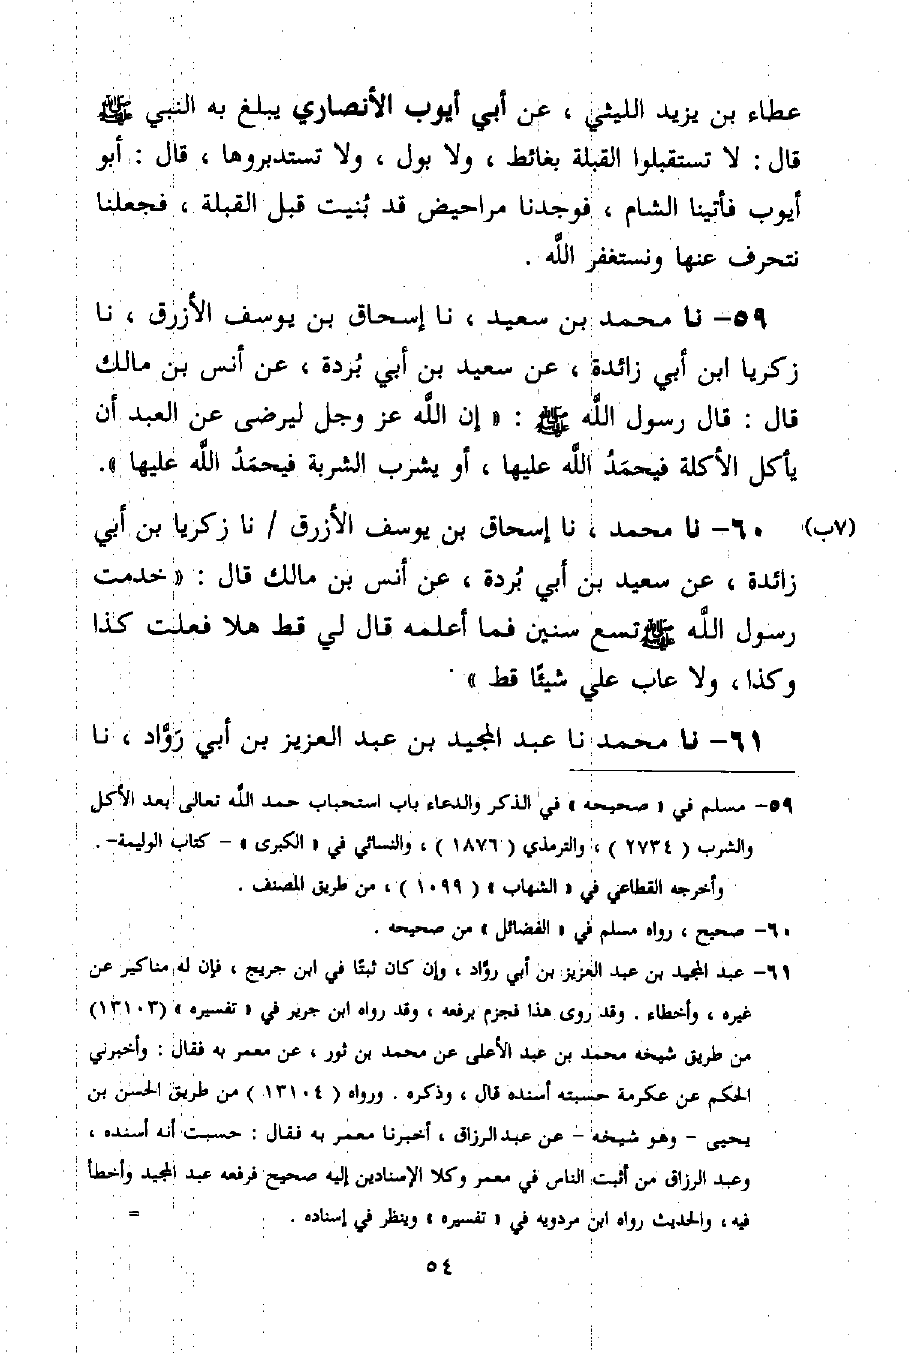 عطاء بن يزيد الليثي ، عن أبي أيوب الأنصاري يبلغ به النبي ﷺ
قال : لا تستقبلوا القبلة بغائط ، ولا بول ، ولا تستدبروها ، قال : أبو
أيوب فأتينا الشام ، فوجدنا مراحيض قد بُنيت قبل القبلة ، فجعلنا
نتحرف عنها ونستغفر اللَّه .
٥٩- نا محمد بن سعيد ، نا إسحاق بن يوسف الأزرق ، نا
زكريا ابن أبي زائدة ، عن سعيد بن أبي بُردة ، عن أنس بن مالك
قال : قال رسول اللَّه ﷺ : « إن اللَّه عز وجل ليرضى عن العبد أن
يأكل الأكلة فيحمَدُ اللَّه عليها ، أو يشرب الشربة فيحمَدُ اللَّه عليها ».
(٧ب) ٦٠- نا محمد ، نا إسحاق بن يوسف الأزرق / نا زكريا بن أبي
زائدة ، عن سعيد بن أبي بُردة ، عن أنس بن مالك قال : « خدمت
رسول اللَّه ﷺ تسع سنين فما أعلمه قال لي قط هلا فعلت كذا
وكذا ، ولا عاب علي شيئًا قط »
٦١- نا محمد نا عبد المجيد بن عبد العزيز بن أبي رَوَّاد ، نا
٥٩- مسلم في « صحيحه » في الذكر والدعاء باب استحباب حمد اللَّه تعالى بعد الأكل
والشرب ( ٢٧٣٤ ) ، والترمذي ( ١٨٧٦ ) ، والنسائي في « الكبرى » - كتاب الوليمة- .
وأخرجه القطاعي في « الشهاب » ( ١٠٩٩ ) ، من طريق المصنف .
٦٠- صحيح ، رواه مسلم في « الفضائل » من صحيحه .
٦١- عبد المجيد بن عبد العزيز بن أبي روَّاد ، وإن كان ثبتًا في ابن جريج ، فإن له مناكير عن
غيره ، وأخطاء . وقد روى هذا فجزم برفعه ، وقد رواه ابن جرير في « تفسيره » (١٣١٠٣)
من طريق شيخه محمد بن عبد الأعلى عن محمد بن ثور ، عن معمر به فقال : وأخبرني
الحكم عن عكرمة حسبته أسنده قال ، وذكره . ورواه ( ١٣١٠٤ ) من طريق الحسن بن
يحيى - وهو شيخه - عن عبدالرزاق ، أخبرنا معمر به فقال : حسبت أنه أسنده ،
وعبد الرزاق من أثبت الناس في معمر وكلا الإسنادين إليه صحيح فرفعه عبد المجيد وأخطأ
فيه ، والحديث رواه ابن مردويه في « تفسيره » وينظر في إسناده . =
٥٤